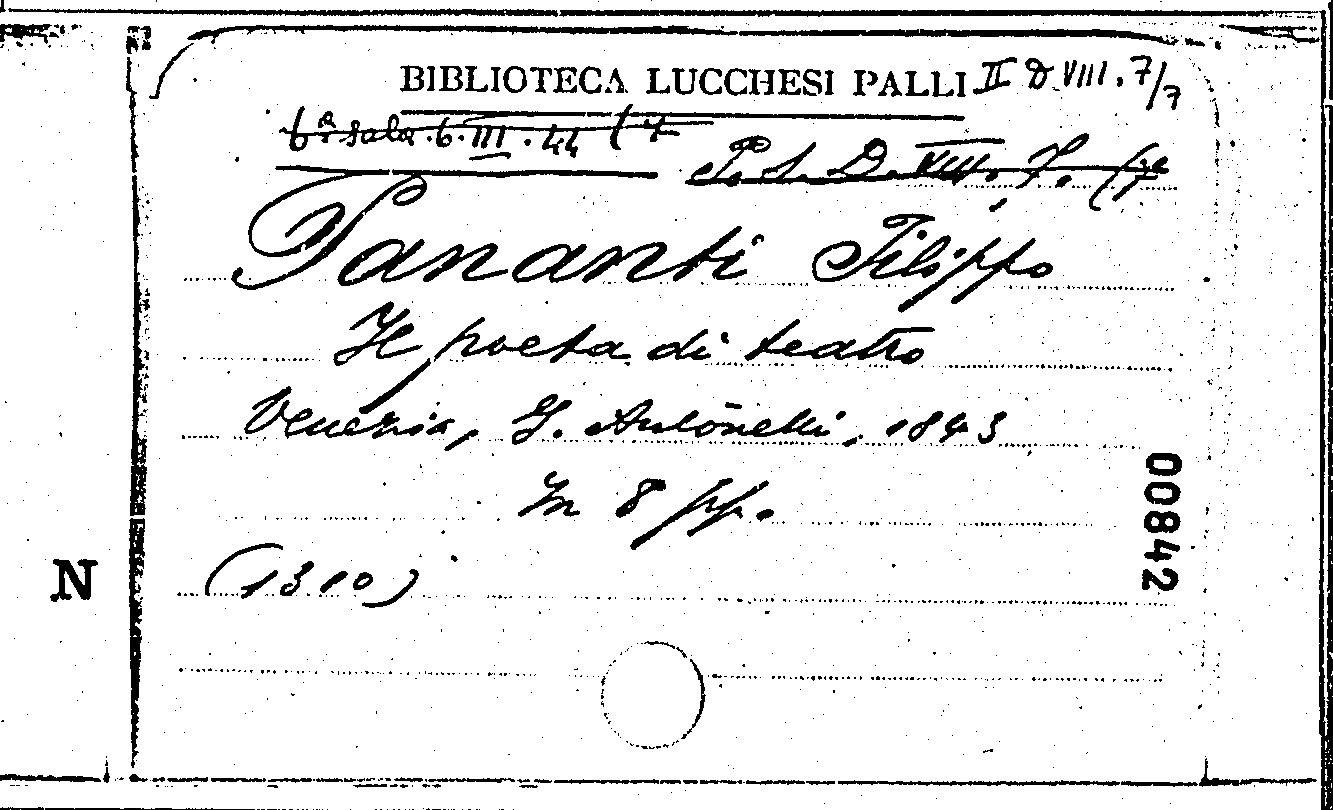 BIBLIOTECA LUCCHESI PALLI II D VIII. 7/7
6ª sala. 6. III. 44 (7
P. S. D. VIII. 7. (7
Pananti Filippo
Il poeta di teatro
Venezia, G. Antonelli, 1843
In 8 pp.
00842
N
(1310)